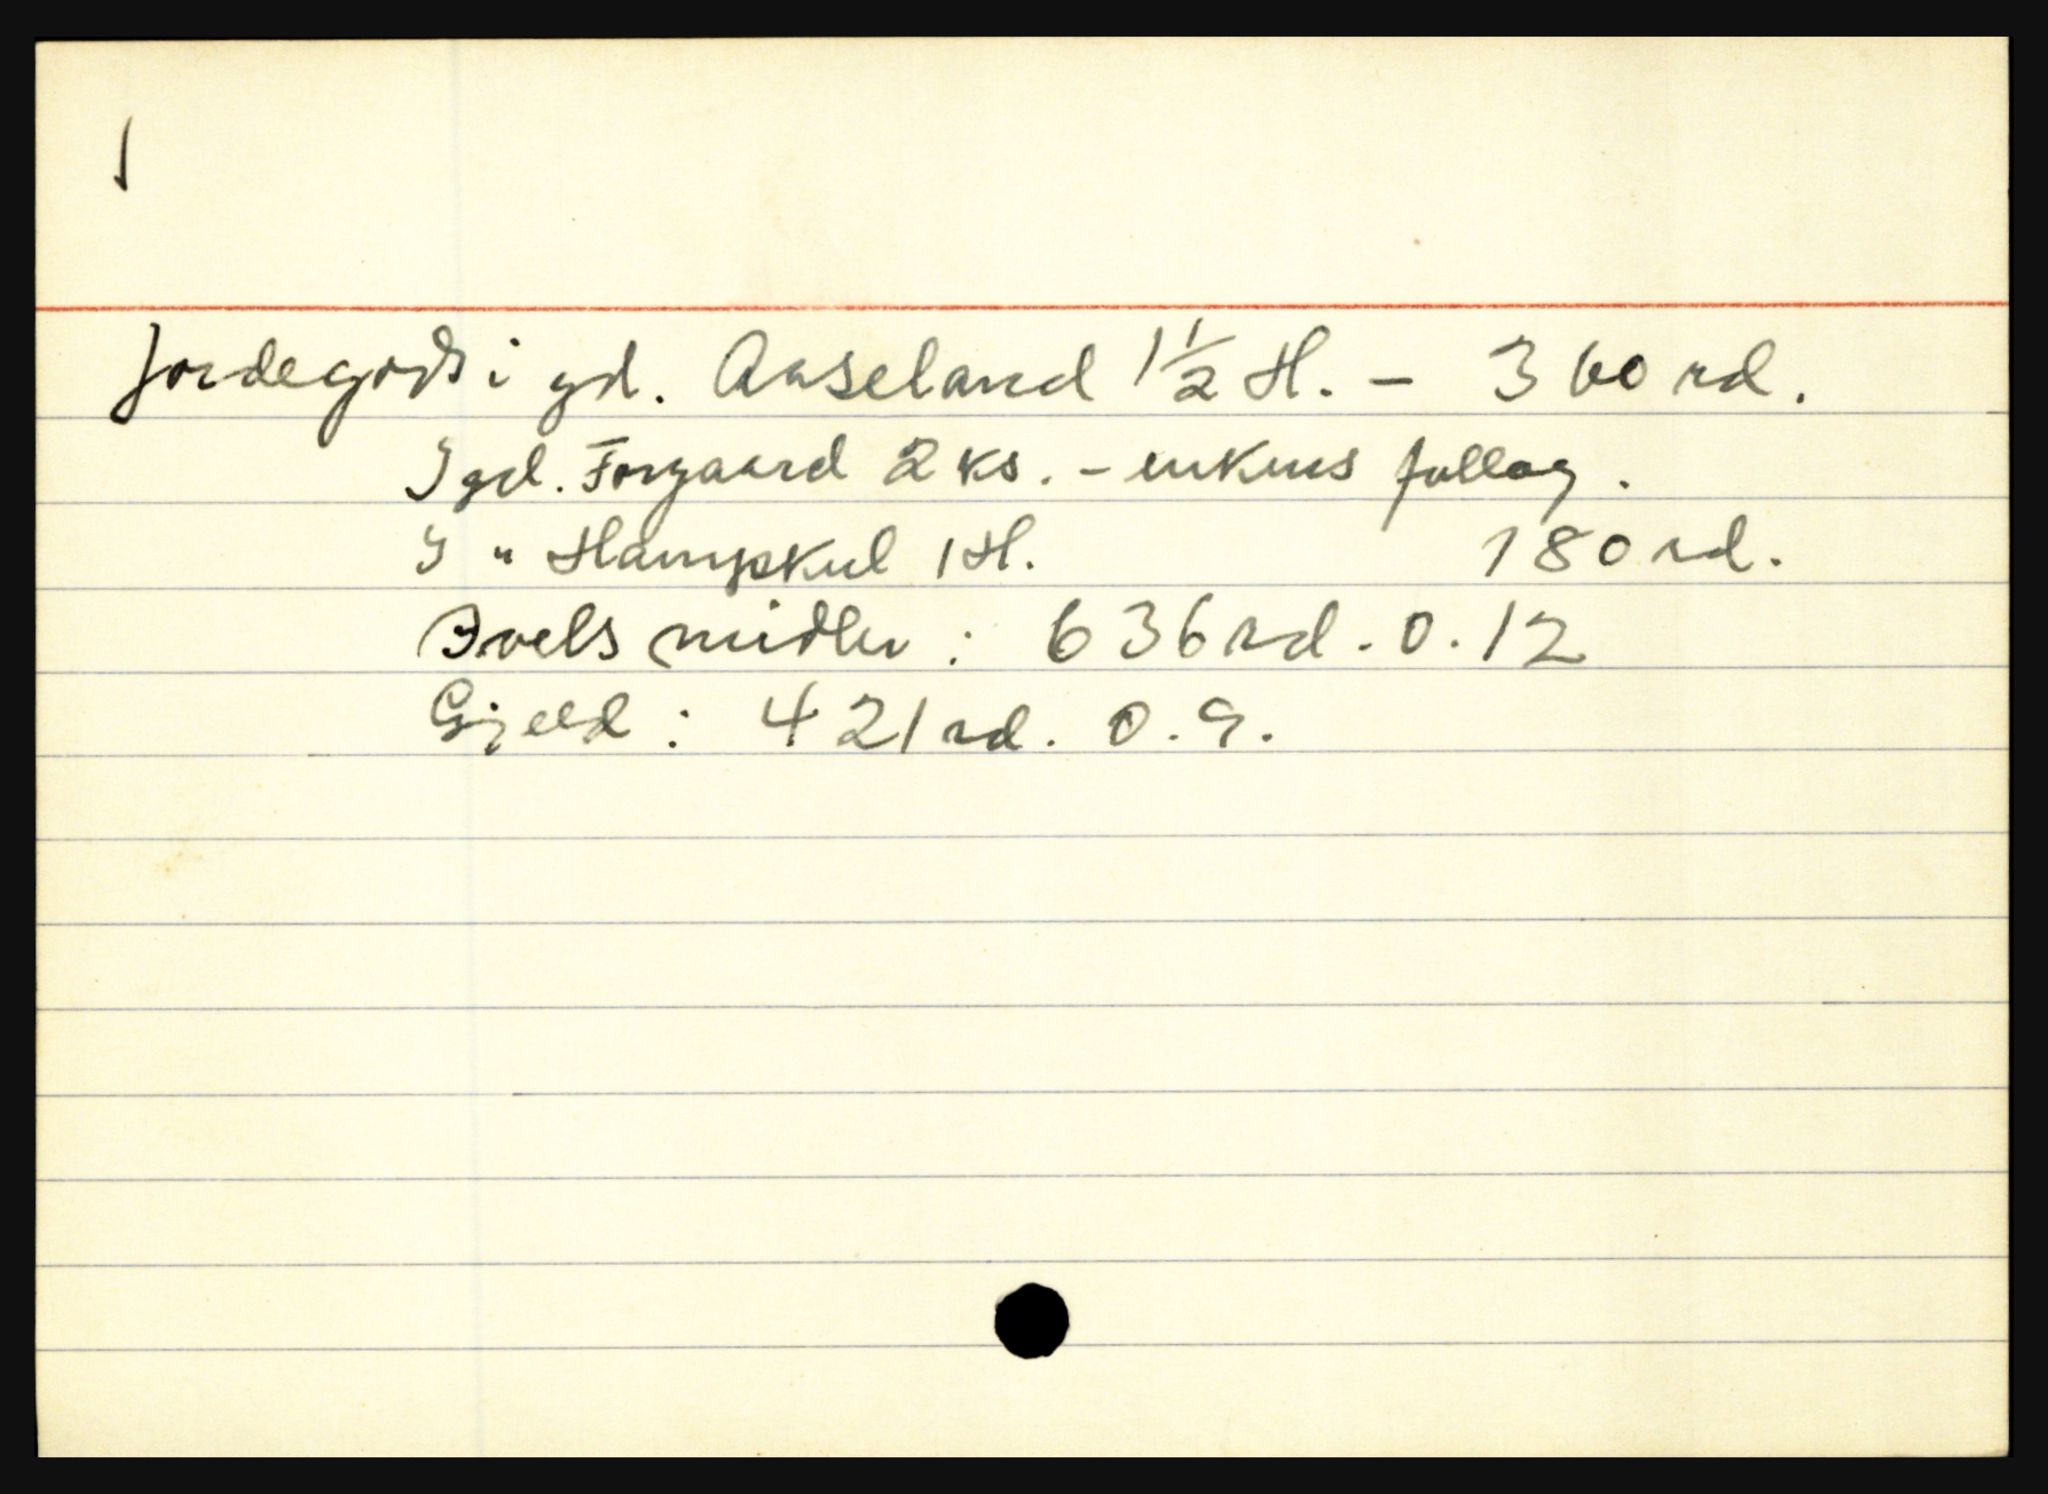 Jordegods i gd. Aaseland 1½ H. - 360 rd.
I gd. Forgaard 2 ks. - enkens fellog.
I " Hampskul 1 H. 180 rd.
Boets midler : 636 rd. 0. 12
Gjeld : 421 rd. 0. 9.